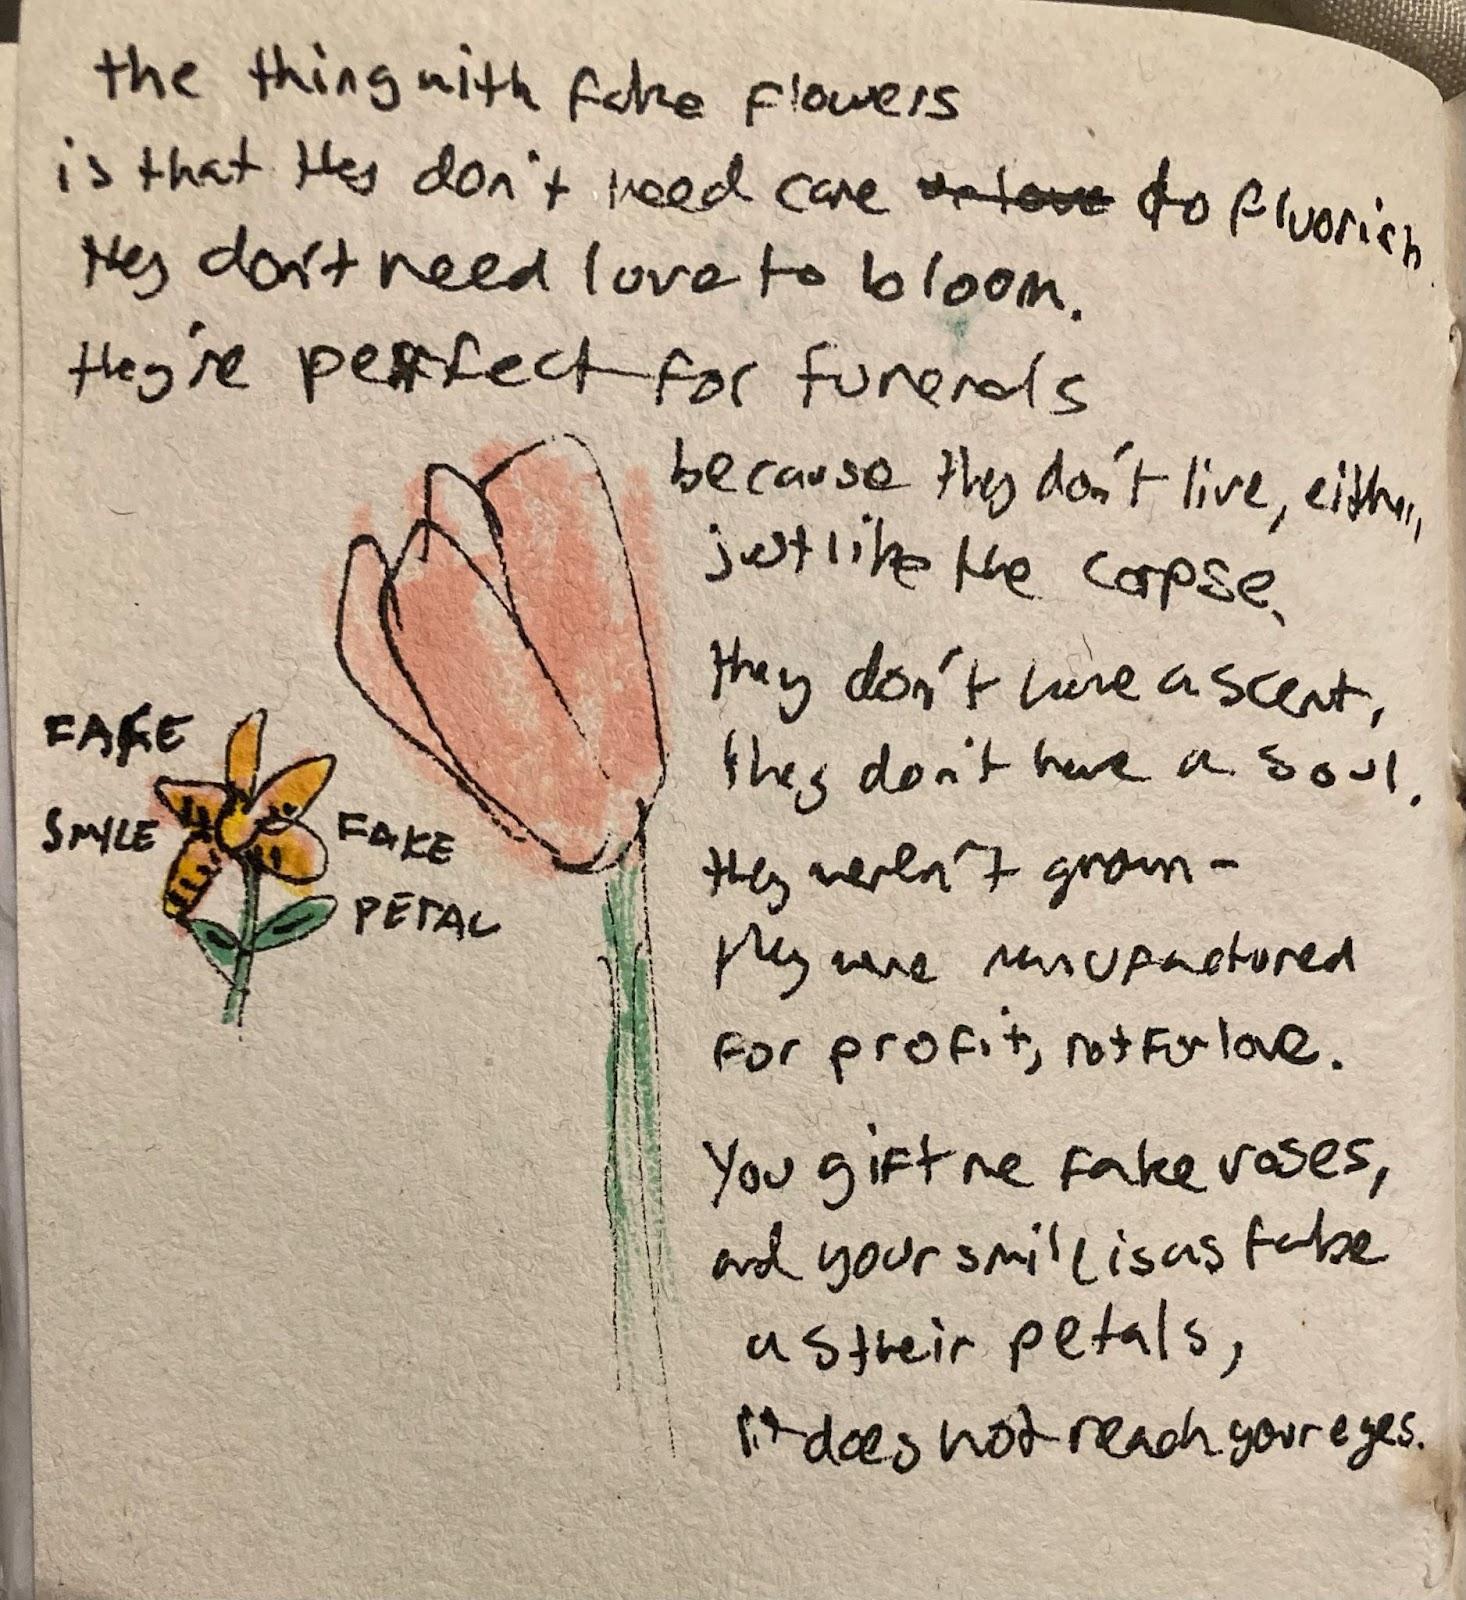 the thing with fake flowers
is that they don't need care or love to fluorish.
they don't need love to bloom.
they're perfect for funerals
because they don't live, either,
just like the corpse.
they don't have a scent,
they don't have a soul.
they weren't grown -
they were manufactured
for profit, not for love.
You gift me fake roses,
and your smile is as fake
as their petals,
it does not reach your eyes.
FAKE
SMILE
FAKE
PETAL